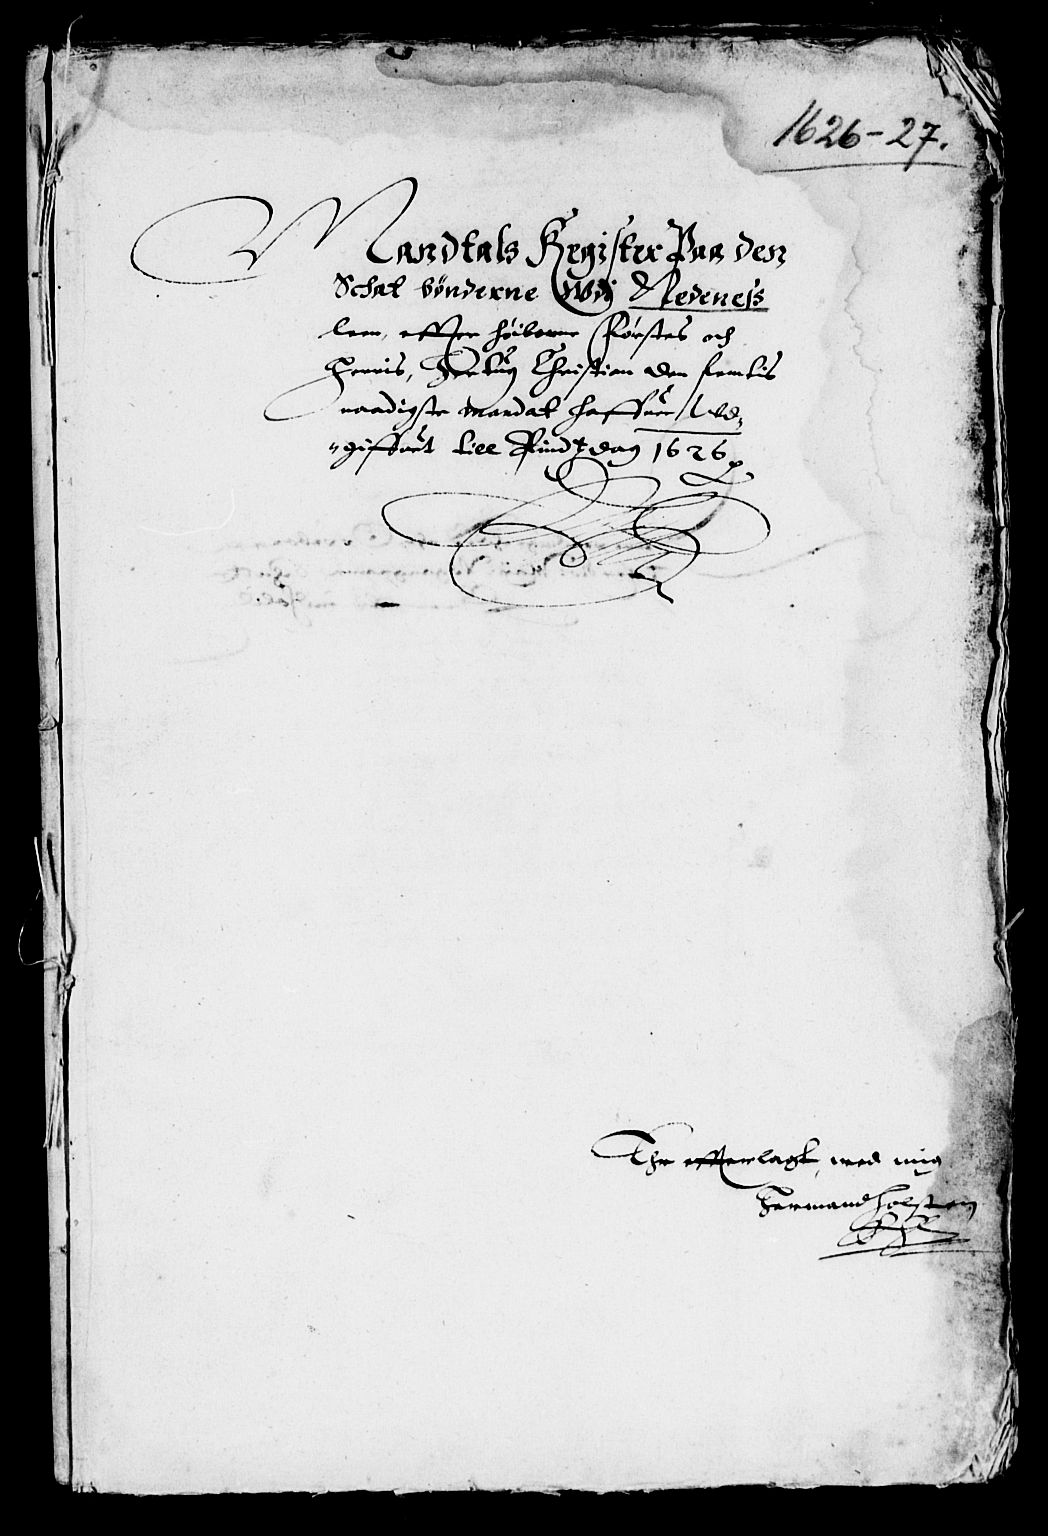 1626-27.
Mandtals Register Paa den
Schat bönderne Wdj Nedeness
leen, effter höiborne Förstes och
Herris, Hertug Christian den femtis
naadigste mandat haffuer Wd-
giffuet till Pindtzdag 1626
Thr efterlagt med mig
Hermand Holsten